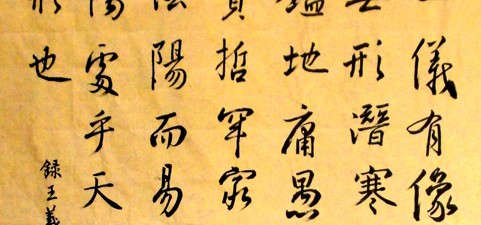 儀有像
形潛寒
鑑地庸愚
哲罕窮
陽而易
陽處乎天
形也
録王羲